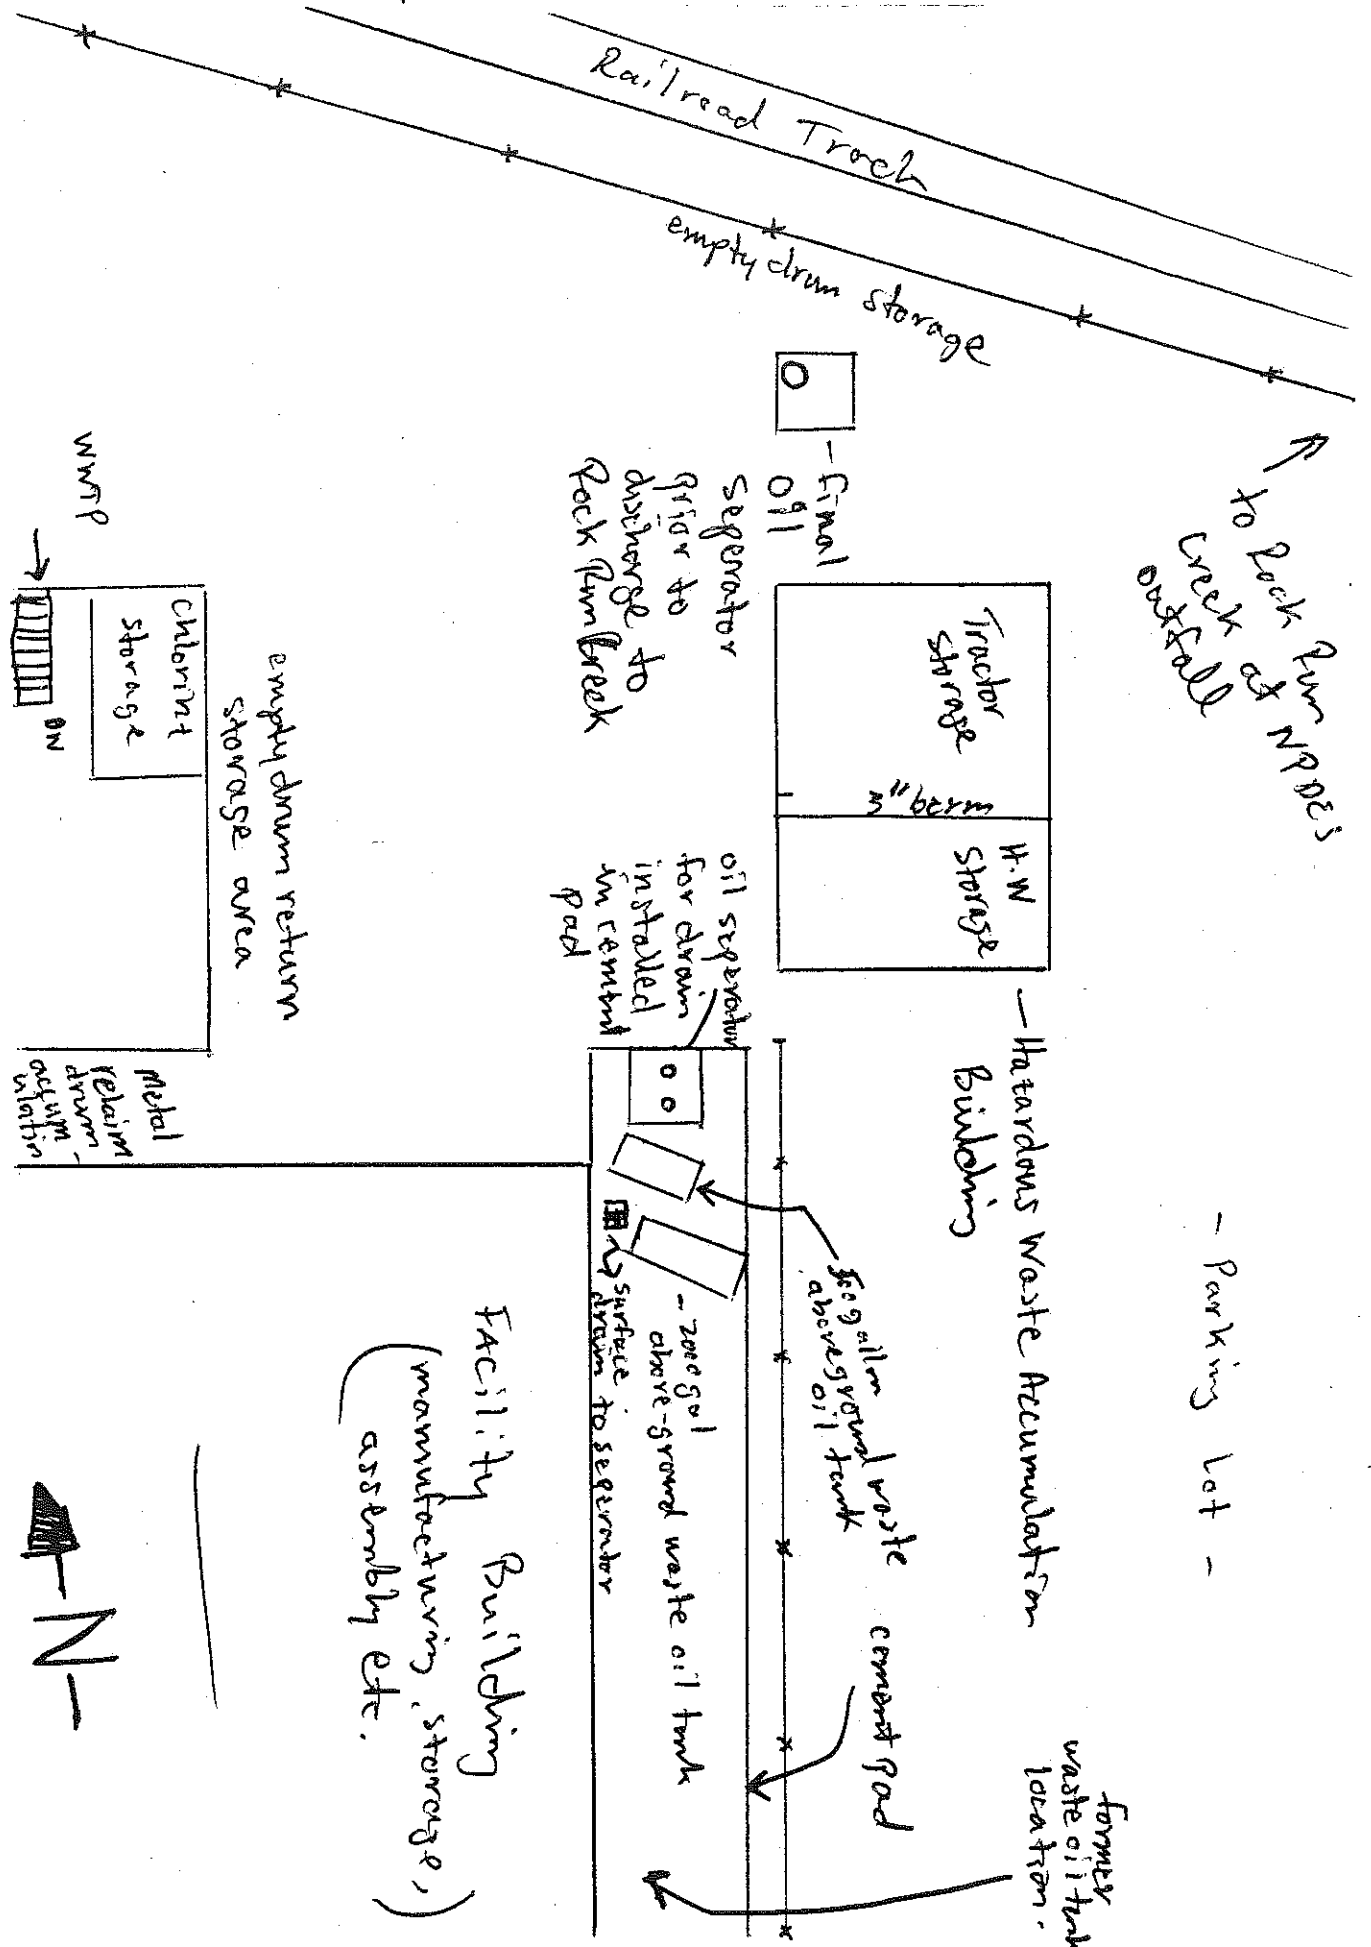 Railroad Track
empty drum storage
to Rock Run
Creek at NPDES
outfall
- final
oil
seperator
prior to
discharge to
Rock Run Creek
Tractor
storage
3" berm
H.W
Storage
- Hazardous Waste Accumulation
Building
- Parking Lot -
WWTP
Chlorint
storage
DN
empty drum return
storage area
Metal
relaim
drum
accum-
ulatin
oil seperator
for drain
installed
in cement
pad
gallon
aboveground waste
oil tank
- 2000 gal
above-ground waste oil tank
surface
drain to seperator
cement pad
former
waste oil tank
location.
FAcility Building
(manufacturing, storage,
assembly etc.)
N